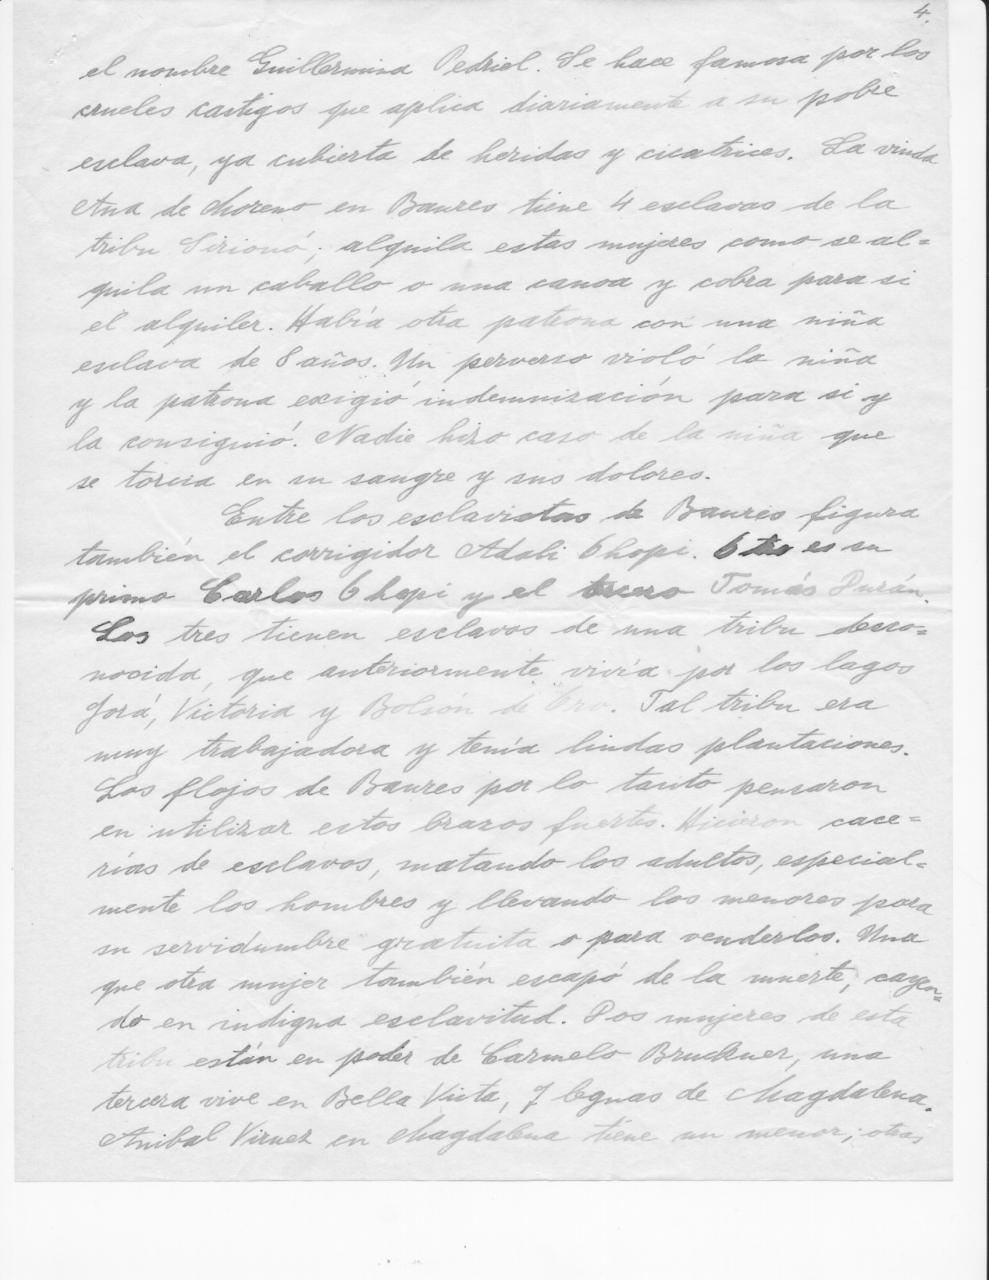 4.
el nombre Guillermina Pedriel. Se hace famosa por los
crueles castigos que aplica diariamente a su pobre
esclava, ya cubierta de heridas y cicatrices. La viuda
Ana de Moreno en Baures tiene 4 esclavas de la
tribu Sirionó; alquila estas mujeres como se al=
quila un caballo o una canoa y cobra para si
el alquiler. Había otra patrona con una niña
esclava de 8 años. Un perverso violó la niña
y la patrona exigió indemnización para si y
la consiguió. Nadie hizo caso de la niña que
se torcia en su sangre y sus dolores.
Entre los esclavistas de Baures figura
también el corrigidor Adali Chopi. Otro es su
primo Carlos Chopi y el tercero Tomás Durán.
Los tres tienen esclavos de una tribu desco=
nocida, que anteriormente vivía por los lagos
Jorá, Victoria y Bolsón de Oro. Tal tribu era
muy trabajadora y tenía lindas plantaciones.
Los flojos de Baures por lo tanto pensaron
en utilizar estos brazos fuertes. Hicieron cace=
rías de esclavos, matando los adultos, especial=
mente los hombres y llevando los menores para
su servidumbre gratuita o para venderlos. Una
que otra mujer también escapó de la muerte, cayen=
do en indigna esclavitud. Dos mujeres de esta
tribu están en poder de Carmelo Bruckner, una
tercera vive en Bella Vista, 7 leguas de Magdalena.
Anibal Virnez en Magdalena tiene un menor; otras